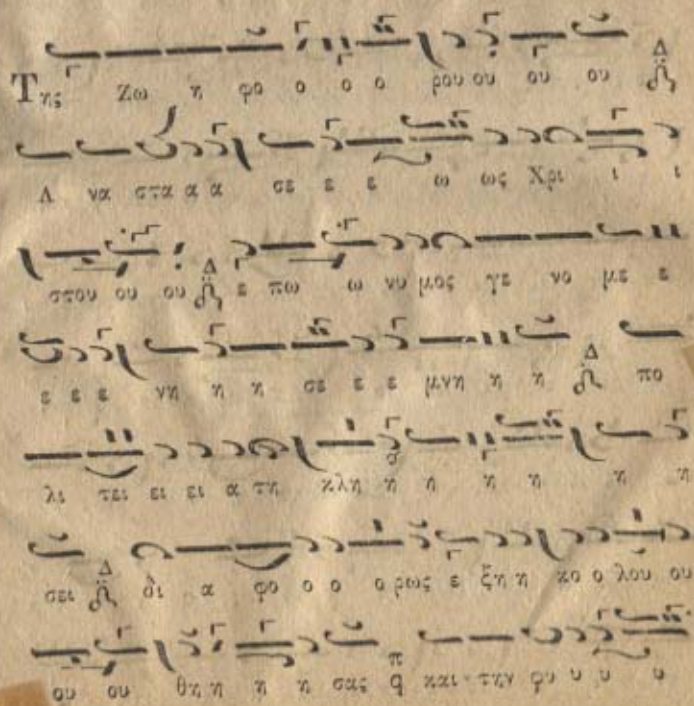 Της ζω η φο ο ο ο ρου ου ου ου Δ
Α να στα α α σε ε ε ω ως Χρι ι ι
στου ου ου Δ ε πω ω νυ μος γε νο με ε
ε ε ε νη η η σε ε ε μνη η η Δ πο
λι τει ει ει α τη κλη η η η η η η
σει Δ δι α φο ο ο ο ρως ε ξη η κο ο λου ου
ου ου θη η η η σας π q και την φυ υ υ υ